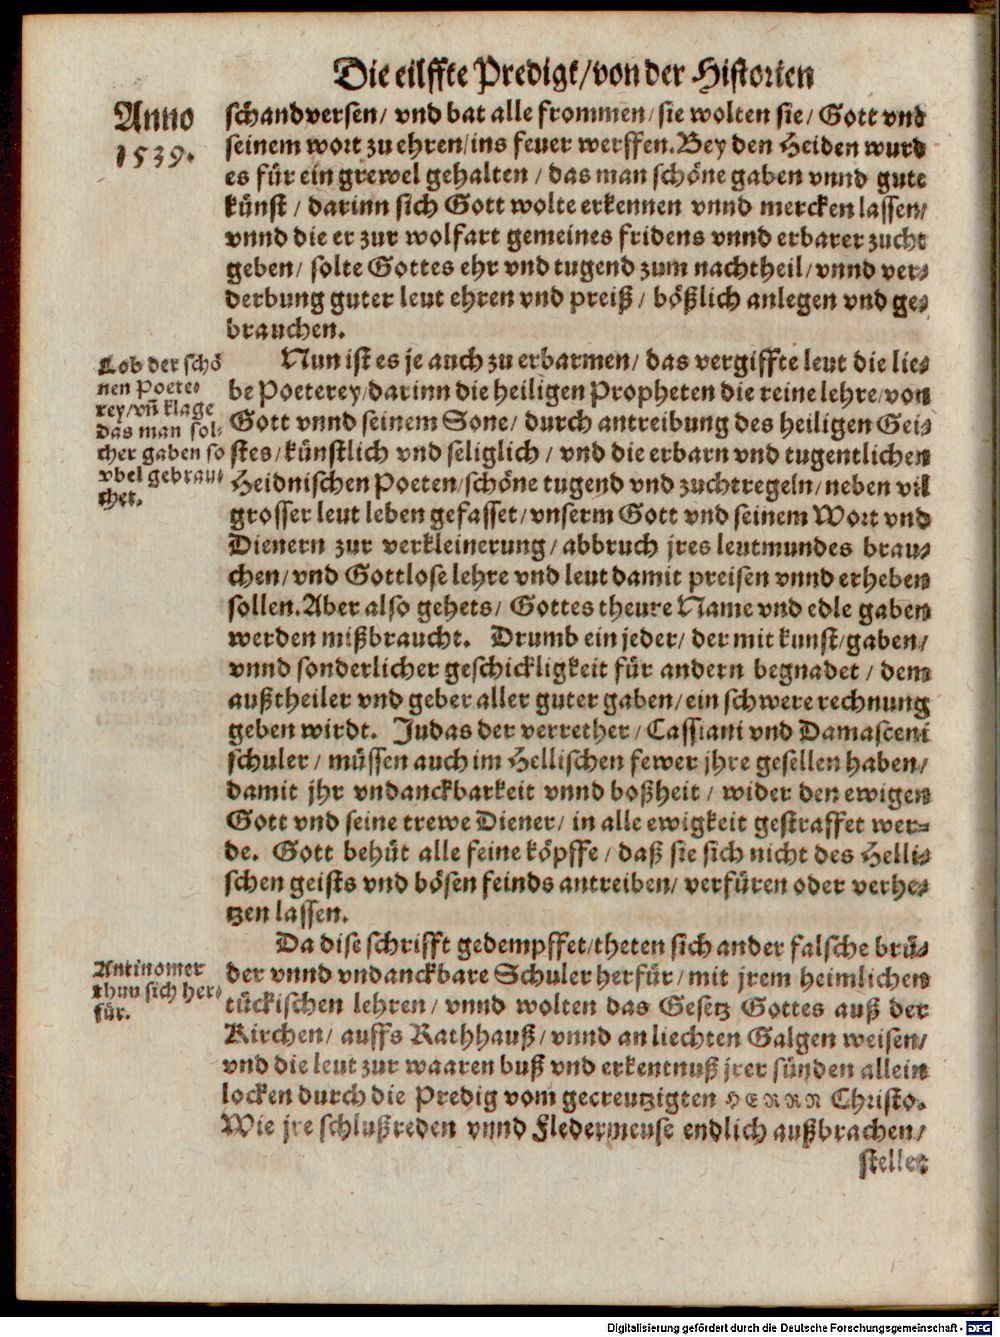 Die eilffte Predigt/von der Historien
Anno
1539.
schandversen/ vnd bat alle frommen/ sie wolten sie/ Gott vnd
seinem wort zu ehren/ins feuer werffen. Bey den Heiden wurd
es für ein grewel gehalten / das man schöne gaben vnnd gute
künst / darinn sich Gott wolte erkennen vnnd mercken lassen/
vnnd die er zur wolfart gemeines fridens vnnd erbarer zucht
geben/ solte Gottes ehr vnd tugend zum nachtheil/ vnnd ver-
derbung guter leut ehren vnd preiß / bößlich anlegen vnd ge-
brauchen.
Lob der schö
nen Poete-
rey/vñ klage
das man sol-
cher gaben so
vbel gebrau-
chet.
Nun ist es je auch zu erbarmen/ das vergiffte leut die lie-
be Poeterey/darinn die heiligen Propheten die reine lehre/von
Gott vnnd seinem Sone/ durch antreibung des heiligen Gei-
stes/künstlich vnd seliglich / vnd die erbarn vnd tugentlichen
Heidnischen Poeten/schöne tugend vnd zuchtregeln/neben vil
grosser leut leben gefasset/vnserm Gott vnd seinem Wort vnd
Dienern zur verkleinerung/abbruch jres leutmundes brau-
chen/vnd Gottlose lehre vnd leut damit preisen vnnd erheben
sollen. Aber also gehets/ Gottes theure Name vnd edle gaben
werden mißbraucht. Drumb ein jeder/ der mit kunst/gaben/
vnnd sonderlicher geschickligkeit für andern begnadet / dem
außtheiler vnd geber aller guter gaben/ein schwere rechnung
geben wirdt. Judas der verrether/Cassiani vnd Damasceni
schuler/ müssen auch im Hellischen fewer jhre gesellen haben/
damit jhr vndanckbarkeit vnnd boßheit / wider den ewigen
Gott vnd seine trewe Diener/ in alle ewigkeit gestraffet wer-
de. Gott behüt alle feine köpffe/ daß sie sich nicht des Helli-
schen geists vnd bösen feinds antreiben/ verfüren oder verhe-
tzen lassen.
Antinomer
thun sich her-
für.
Da dise schrifft gedempffet/theten sich ander falsche brü-
der vnnd vndanckbare Schuler herfür/mit jrem heimlichen
tückischen lehren/ vnnd wolten das Gesetz Gottes auß der
Kirchen/ auffs Rathhauß/vnnd an liechten Galgen weisen/
vnd die leut zur waaren buß vnd erkentnuß jrer sünden allein
locken durch die Predig vom gecreutzigten HERRN Christo.
Wie jre schlußreden vnnd Fledermeuse endlich außbrachen/
stellet
Digitalisierung gefördert durch die Deutsche Forschungsgemeinschaft - DFG